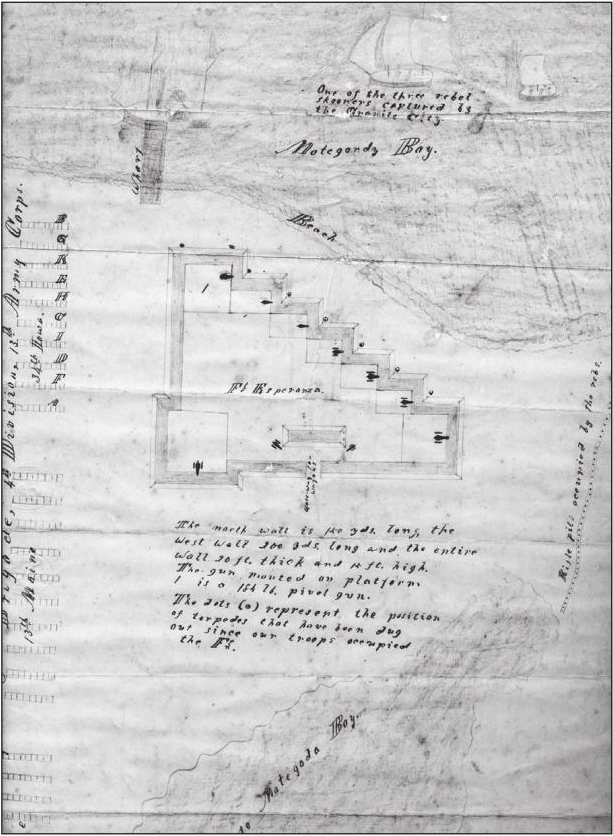 One of the three rebel
shooners captured by
the Granite City.
Wharf
Mategordy Bay.
Beach
B
G
K
E
H
C
I
D
F
A
34th Iowa.
Brigade, 4th Division, 13th Army Corps.
13th Maine
1
Ft Esperanza.
The north wall is 140 yds. long, the
West wall 200 yds. long and the entire
wall 20 ft. thick and 14 ft. high.
The gun mounted on platform
1 is a 154 lb. pivot gun.
The dots (o) represent the position
of torpedoes that have been dug
out since our troops occupied
the Ft.
Rifle pits occupied by the rebs.
to Mategoda Bay.